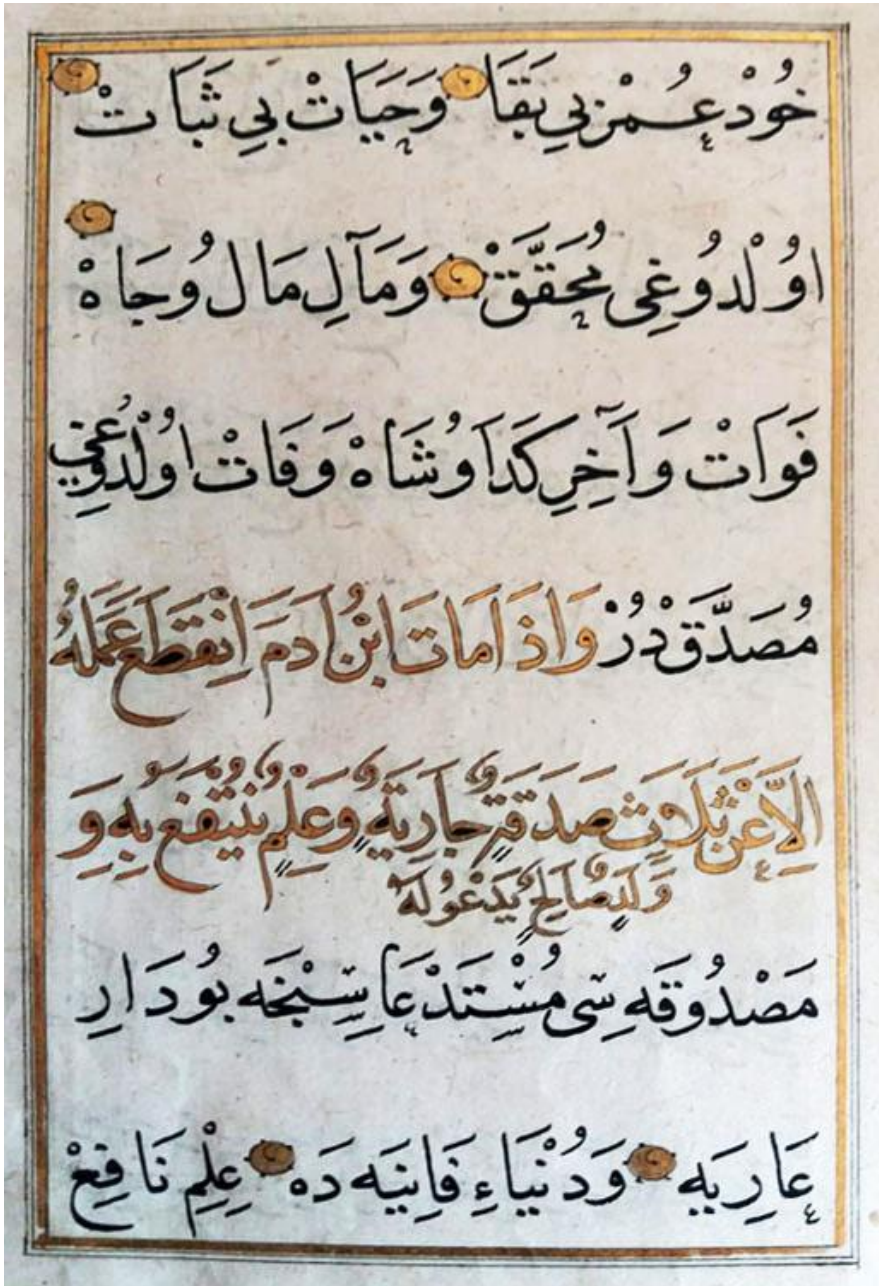 خُودْ عُمْرِ بِي بَقَا وَحَيَاتْ بَيِ ثَبَاتْ
اوُلْدُوغِى مُحَقَّقْ وَمَآلِ مَالْ وُجَاهْ
فَوَاتْ وَآخِرِ كَدَا وُشَاهْ وَفَاتْ اوُلْدُوغِي
مُصَدَّقْ دُرْ وَاِذَامَاتَ ابْنُ اَدَمَ اِنْقَطَعَ عَمَلُهُ
اِلَّا عَنْ ثَلَاثٍ صَدَقَةٍ جَارِيَةٍ وَعِلْمٍ يُنْتَفَعُ بِهِ وَ
وَلَدٍ صَالِحٍ يَدْعُولَهُ
مَصْدُوقَه سِى مُسْتَدْعَا سِنْجَه بُودَارِ
عَارِيَه وَدُنْيَاءِ فَانِيَه دَه عِلْمِ نَافِعْ